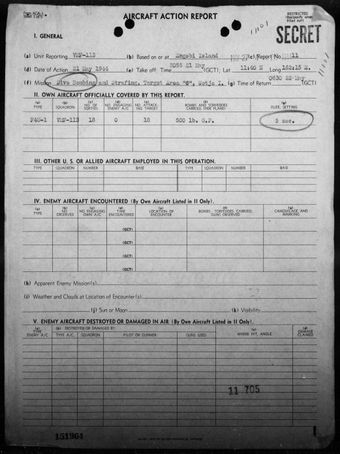 AIRCRAFT ACTION REPORT
RESTRICTED
1101
1101
SECRET
I. GENERAL
(a) Unit Reporting VMF-113 (b) Based on or at Engebi Island Report No. 11
(c) Date of Action 21 May 1944 (e) Take off: Time (GCT); Lat 11:40 N Long 162:15 E.
(f) Mission Dive Bombing and Strafing, (g) Time of Return (GCT)
II. OWN AIRCRAFT OFFICIALLY COVERED BY THIS REPORT.
TYPE SQUADRON BOMBS AND TORPEDOES CARRIED (PER PLANE) FUZE, SETTING
F4U-1 VMF-113 18 0 18 500 lb. G.P.
III. OTHER U. S. OR ALLIED AIRCRAFT EMPLOYED IN THIS OPERATION.
TYPE SQUADRON NUMBER BASE TYPE SQUADRON NUMBER BASE
IV. ENEMY AIRCRAFT ENCOUNTERED (By Own Aircraft Listed in II Only).
(GCT)
(GCT)
(GCT)
(GCT)
(h) Apparent Enemy Mission(s)
(i) Weather and Clouds at Location of Encounter(s)
(j) Sun or Moon (k) Visibility
V. ENEMY AIRCRAFT DESTROYED OR DAMAGED IN AIR (By Own Aircraft Listed in II Only).
TYPE ENEMY A/C DESTROYED OR DAMAGED BY: TYPE A/C SQUADRON PILOT OR GUNNER GUNS USED WHERE HIT, ANGLE DAMAGE CLAIMED
11 705
151961